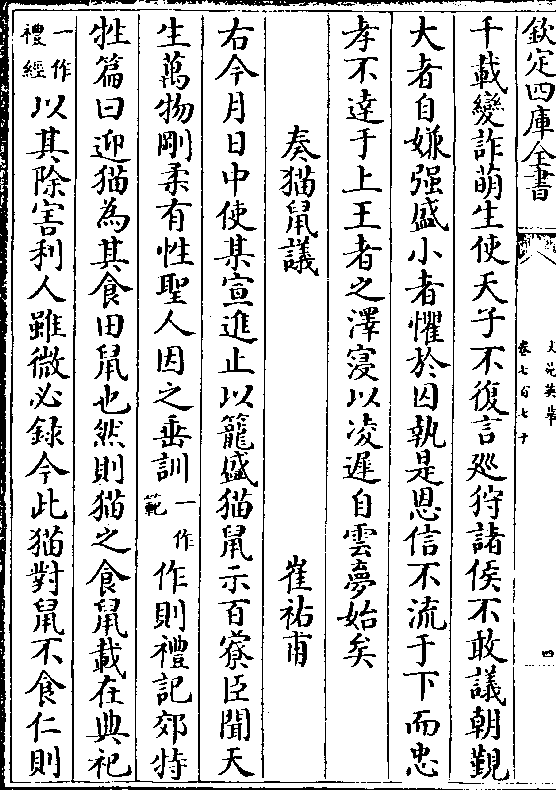 欽定四庫全書
文苑英華
卷七百七十
四
千載變詐萌生使天子不復言廵狩諸侯不敢議朝覲
大者自嫌强盛小者懼於囚執是恩信不流于下而忠
孝不達于上王者之澤寖以凌遲自雲夢始矣
奏猫鼠議 崔祐甫
右今月日中使某宣進止以籠盛猫鼠示百寮臣聞天
生萬物剛柔有性聖人因之垂訓一作範作則禮記郊特
牲篇曰迎猫為其食田鼠也然則猫之食鼠載在典祀
一作禮經以其除害利人雖微必録今此猫對鼠不食仁則